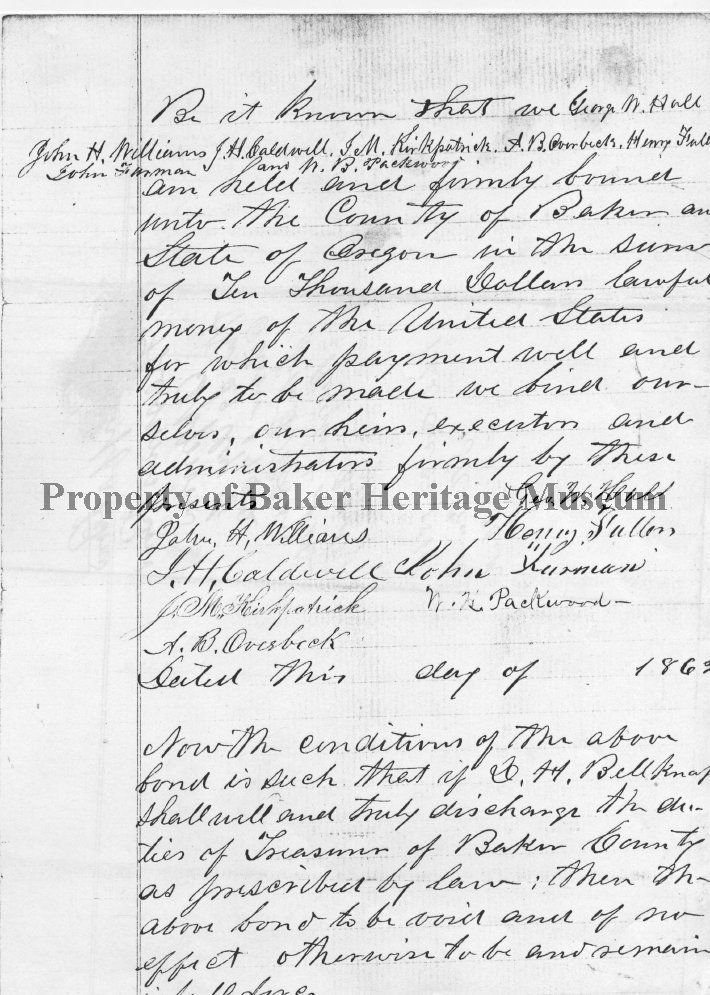 Be it known that we George W. Hall
John H. Williams J. H. Caldwell, J. M. Kirkpatrick, A. B. Overbeck, Henry Fuller
John Furman and W. B. Packwood
am held and firmly bound
unto the County of Baker an
State of Oregon in the sum
of Ten Thousand Dollars lawful
money of the United States
for which payment well and
truly to be made we bind our-
selvs, our heirs, executors and
administrators firmly by these
presents
Property of Baker Heritage Museum
Geo. W. Hall
John, H, Williams Henry Fuller
J. H, Caldwell John Furman
J. M. Kirkpatrick W. H. Packwood
A. B. Overbeck
Dated this day of 186
Now the conditions of the above
bond is such that if D. H. Bellknap
shall well and truly discharge the du-
ties of Treasurer of Baker County
as prescribed by law; then th
above bond to be void and of no
effect otherwise to be and remain
in full force